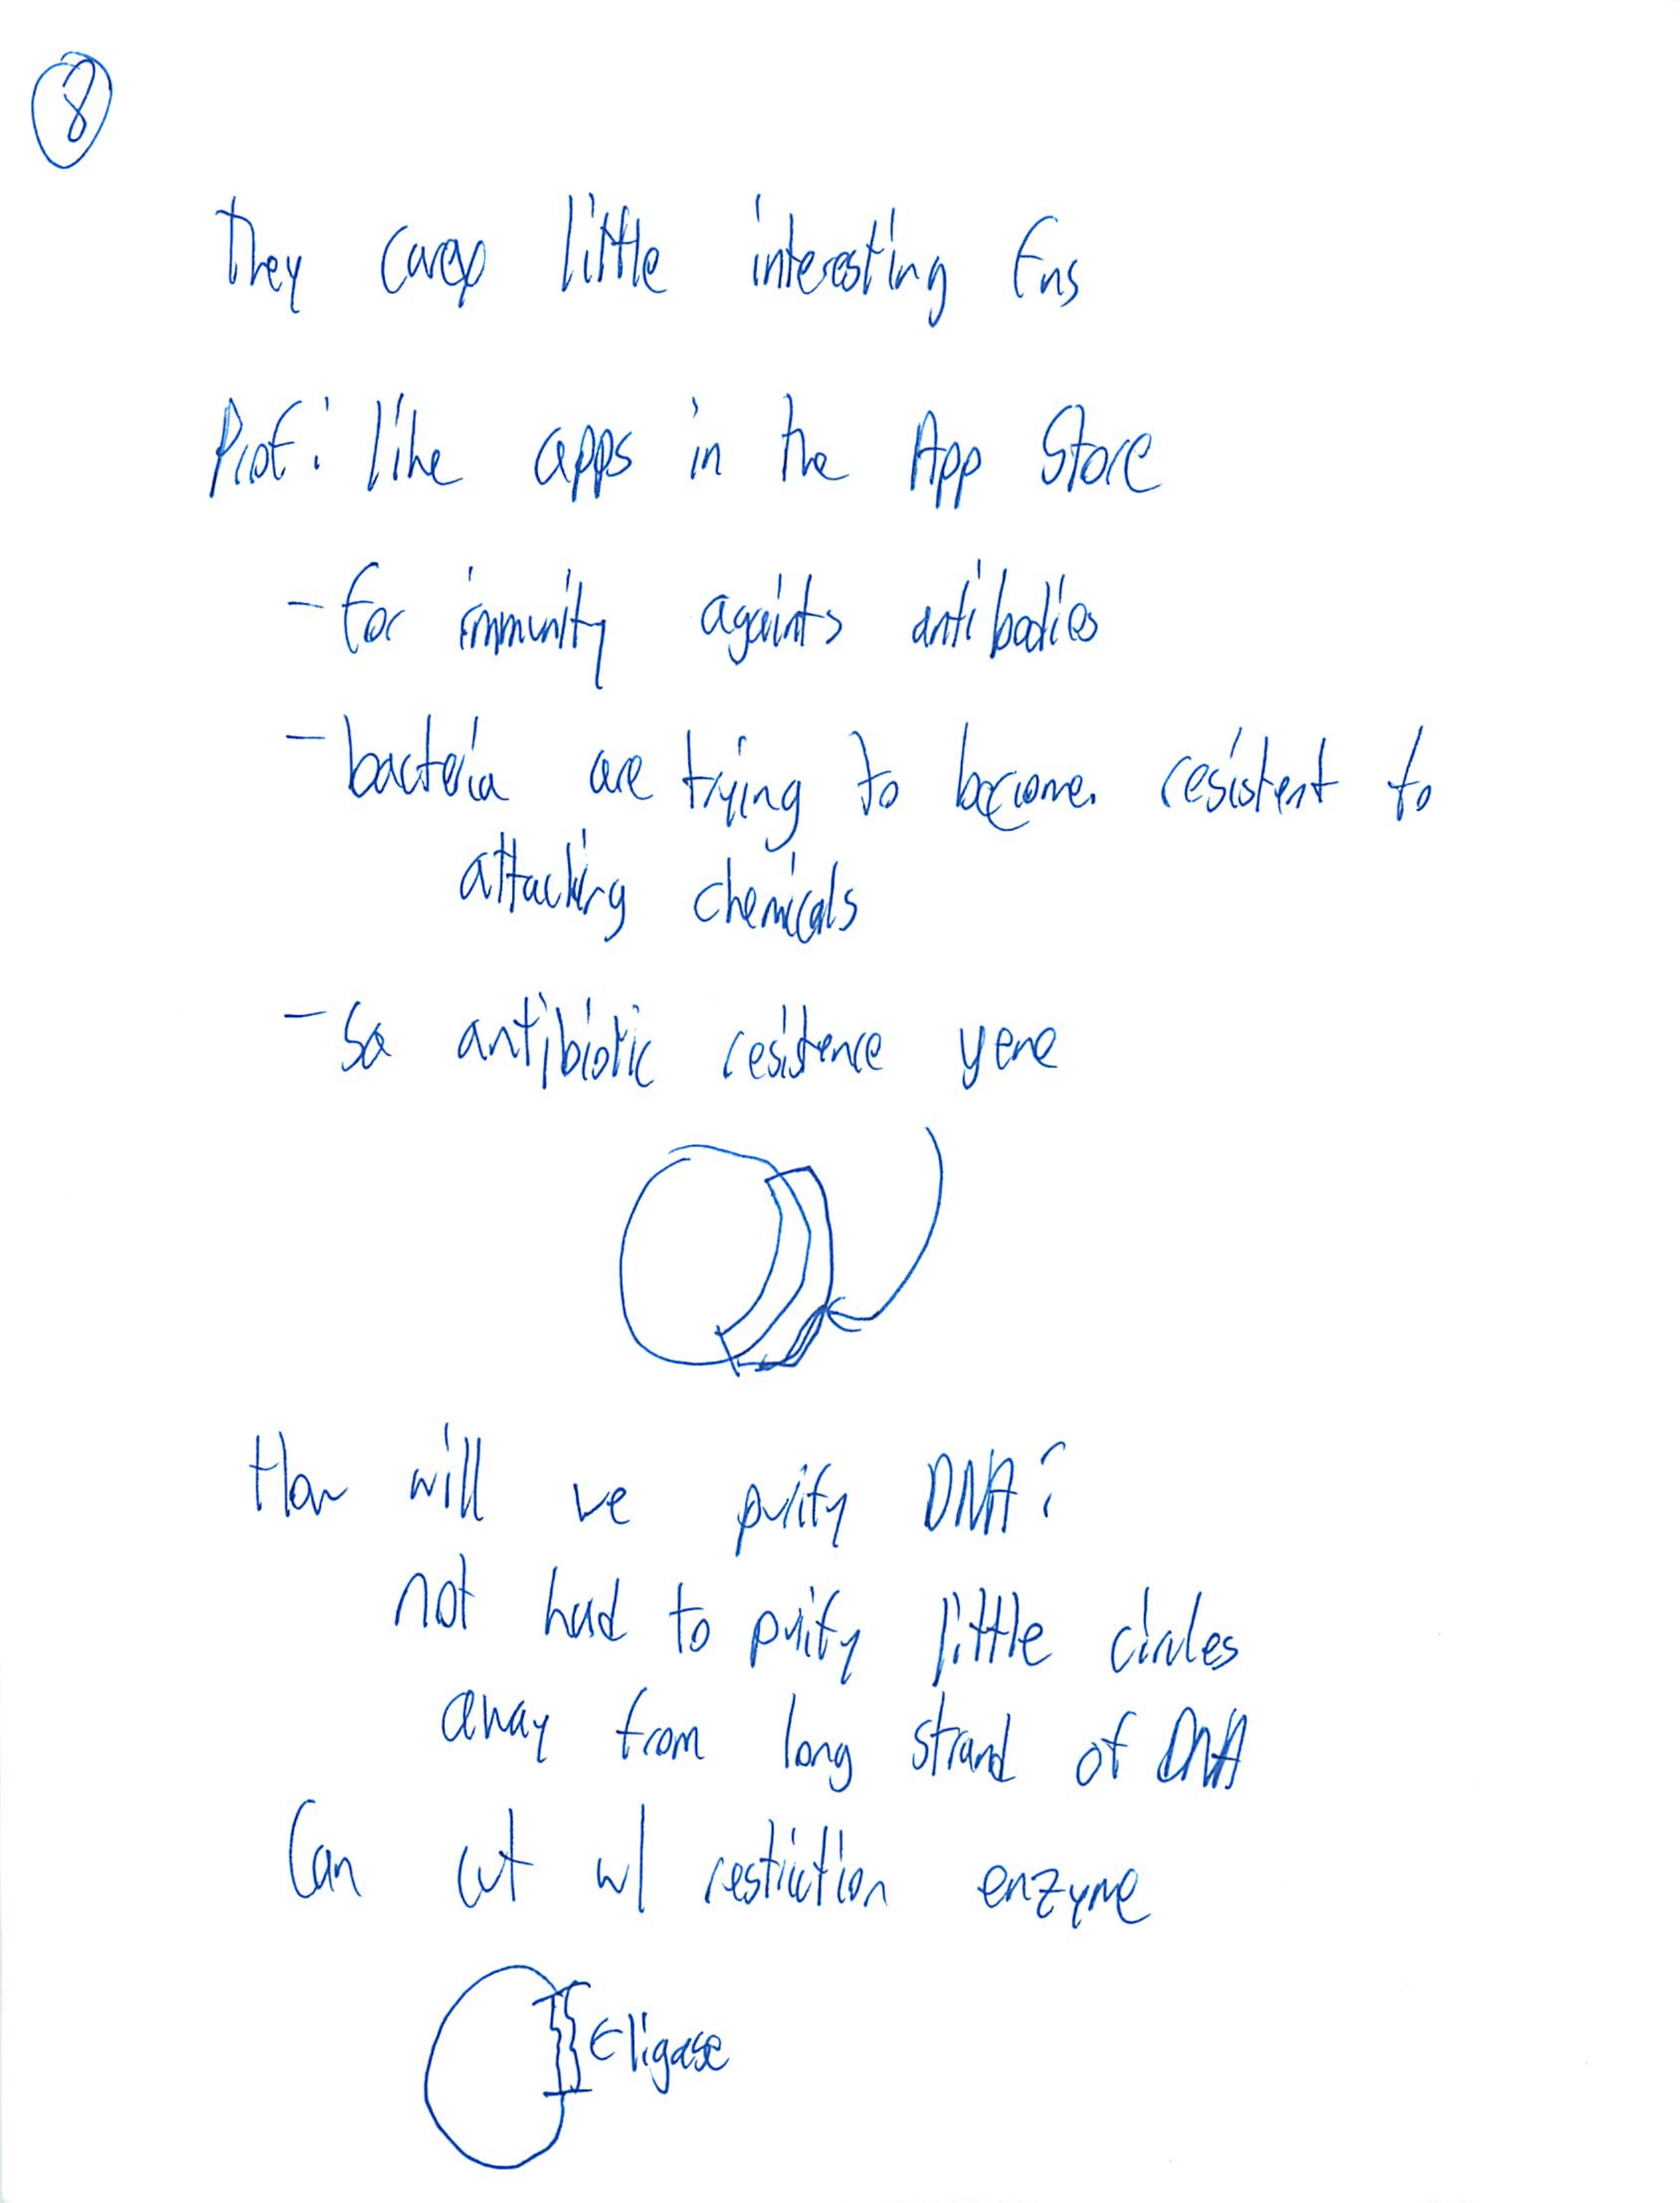 8
They carry little interesting fns
Prof: like apps in the App Store
- for immunity againts antibodies
- bacteria are trying to become resistent to
attacking chemicals
- So antibiotic resistence gene
How will we purify DNA?
not hard to purify little circles
away from long strand of DNA
Can cut w/ restriction enzyme
← ligase